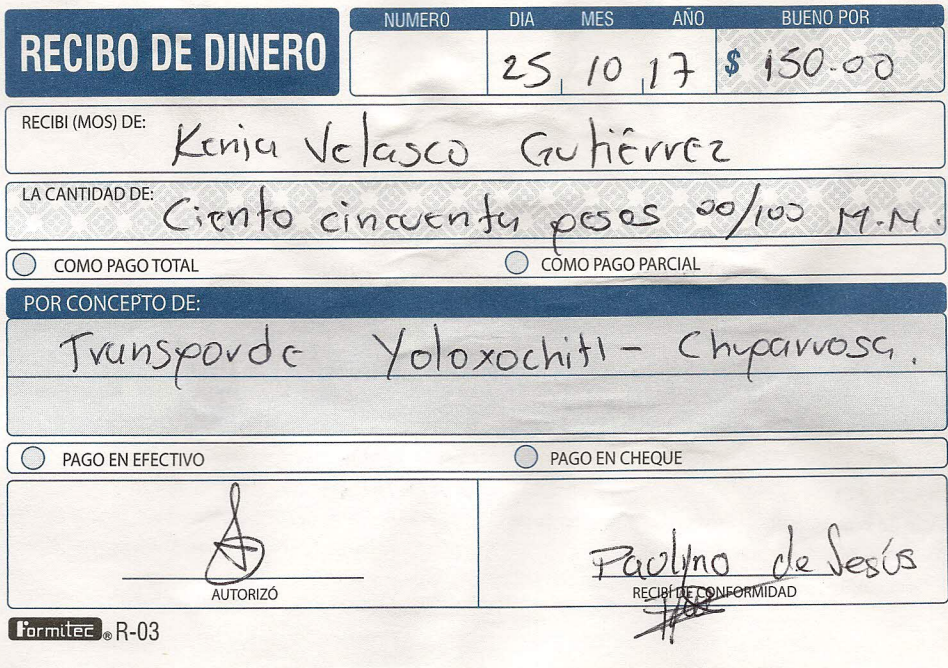 RECIBO DE DINERO
NUMERO DIA MES AÑO BUENO POR
25 10 17 $ 150.00
RECIBI (MOS) DE: Kenia Velasco Gutiérrez
LA CANTIDAD DE: Ciento cincuenta pesos 00/100 M.N.
COMO PAGO TOTAL COMO PAGO PARCIAL
POR CONCEPTO DE:
Transporde Yoloxochitl - Chuparrosa.
PAGO EN EFECTIVO PAGO EN CHEQUE
Paolyno de Jesús
AUTORIZÓ RECIBÍ DE CONFORMIDAD
Formitec ® R-03